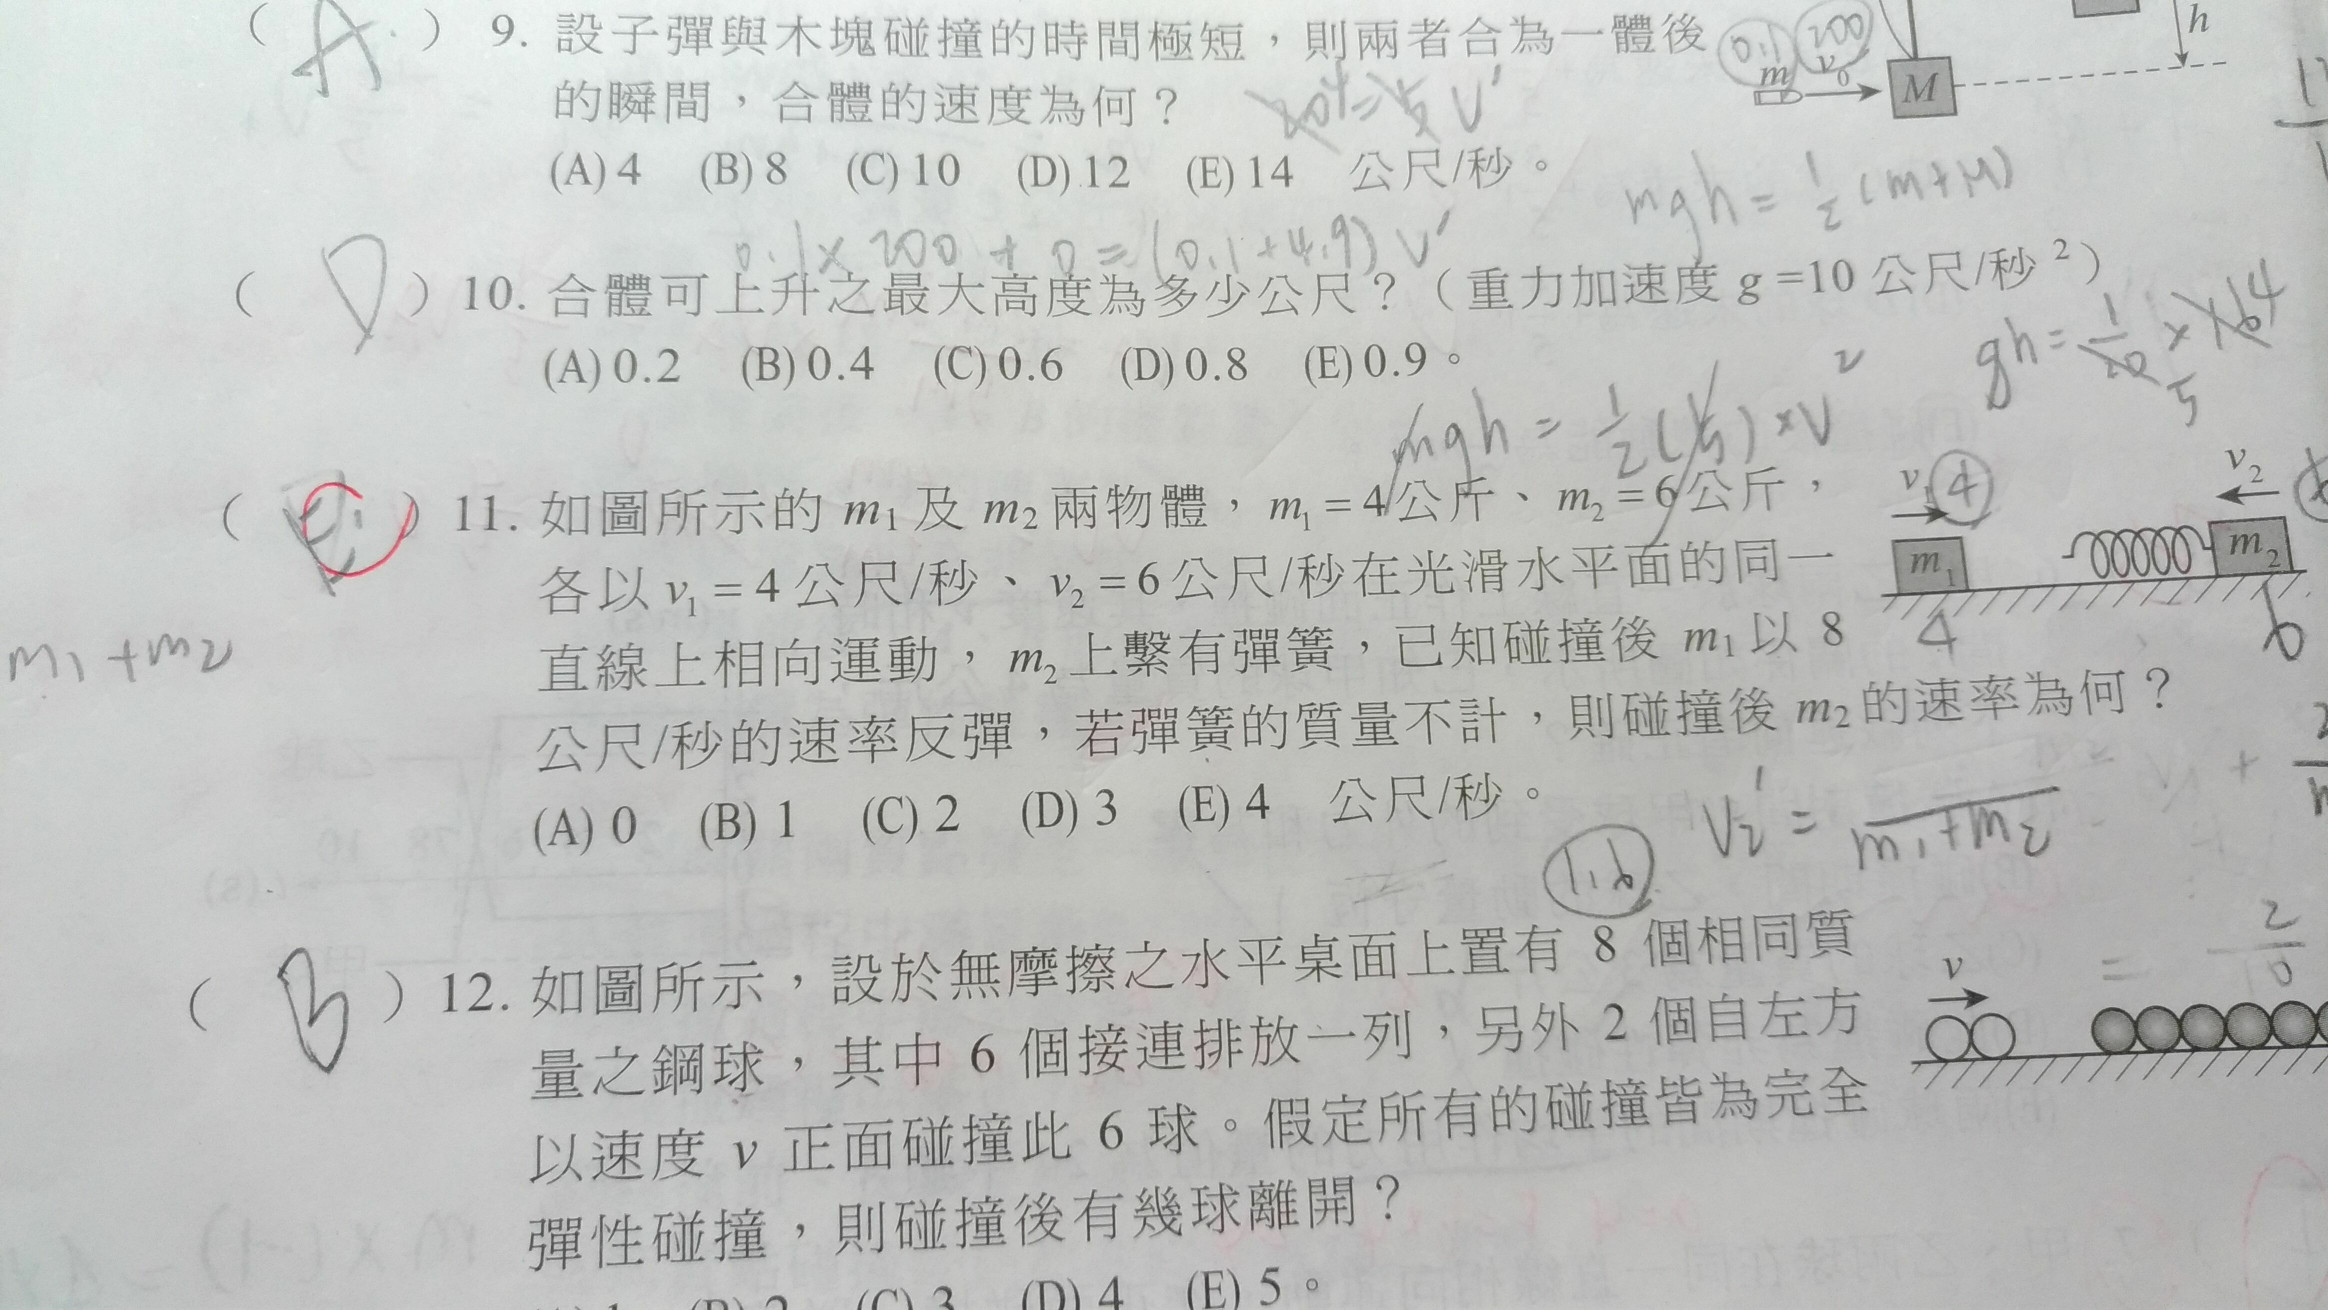 ( A ) 9. 設子彈與木塊碰撞的時間極短,則兩者合為一體後
的瞬間,合體的速度為何?
(A) 4 (B) 8 (C) 10 (D) 12 (E) 14 公尺/秒。
0.1 200
m v₀ M h
mgh = 1/2 (m+M)
0.1 × 200 + 0 = (0.1+4.9) V'
( D ) 10. 合體可上升之最大高度為多少公尺?(重力加速度 g =10 公尺/秒²)
(A) 0.2 (B) 0.4 (C) 0.6 (D) 0.8 (E) 0.9。
( ) 11. 如圖所示的 m₁ 及 m₂ 兩物體,m₁ = 4 公斤、m₂ = 6 公斤,
各以 v₁ = 4 公尺/秒、v₂ = 6 公尺/秒在光滑水平面的同一
直線上相向運動,m₂ 上繫有彈簧,已知碰撞後 m₁ 以 8
公尺/秒的速率反彈,若彈簧的質量不計,則碰撞後 m₂ 的速率為何?
(A) 0 (B) 1 (C) 2 (D) 3 (E) 4 公尺/秒。
4 v₂
m₁ m₂
4 6
m₁+m₂
V₂' = m₁+m₂
( B ) 12. 如圖所示,設於無摩擦之水平桌面上置有 8 個相同質
量之鋼球,其中 6 個接連排放一列,另外 2 個自左方
以速度 v 正面碰撞此 6 球。假定所有的碰撞皆為完全
彈性碰撞,則碰撞後有幾球離開?
(C) 3 (D) 4 (E) 5。
v